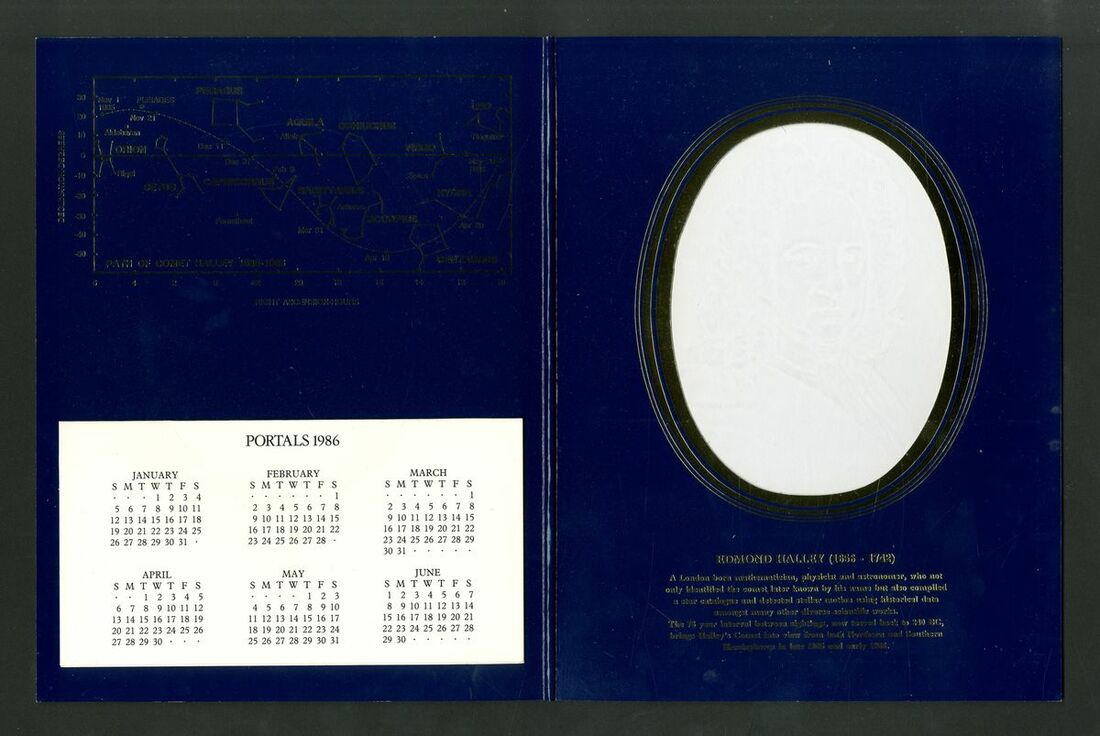 PEGASUS
Nov 1
1985
PLEIADES
Nov 21
AQUILA
OPHIUCHUS
LEO
Aldebaran
Altair
Regulus
ORION
Dec 11
VIRGO
Dec 31
Rigel
Feb 9
Spica
CETUS
CAPRICORNUS
SAGITTARIUS
HYDRA
Antares
Fomalhaut
SCORPIUS
Mar 21
Apr 10
CENTAURUS
PATH OF COMET HALLEY 1985-1986
DECLINATION-DEGREES
RIGHT ASCENSION-HOURS
PORTALS 1986
JANUARY FEBRUARY MARCH
S M T W T F S S M T W T F S S M T W T F S
· · · 1 2 3 4 · · · · · · 1 · · · · · · 1
5 6 7 8 9 10 11 2 3 4 5 6 7 8 2 3 4 5 6 7 8
12 13 14 15 16 17 18 9 10 11 12 13 14 15 9 10 11 12 13 14 15
19 20 21 22 23 24 25 16 17 18 19 20 21 22 16 17 18 19 20 21 22
26 27 28 29 30 31 · 23 24 25 26 27 28 · 23 24 25 26 27 28 29
30 31 · · · · ·
APRIL MAY JUNE
S M T W T F S S M T W T F S S M T W T F S
· · 1 2 3 4 5 · · · · 1 2 3 1 2 3 4 5 6 7
6 7 8 9 10 11 12 4 5 6 7 8 9 10 8 9 10 11 12 13 14
13 14 15 16 17 18 19 11 12 13 14 15 16 17 15 16 17 18 19 20 21
20 21 22 23 24 25 26 18 19 20 21 22 23 24 22 23 24 25 26 27 28
27 28 29 30 · · · 25 26 27 28 29 30 31 29 30 · · · · ·
EDMOND HALLEY (1656 - 1742)
A London born mathematician, physicist and astronomer, who not
only identified the comet later known by his name but also compiled
a star catalogue and detected stellar motion using historical data
amongst many other diverse scientific works.
The 76 year interval between sightings, now traced back to 240 BC,
brings Halley's Comet into view from both Northern and Southern
Hemispheres in late 1985 and early 1986.